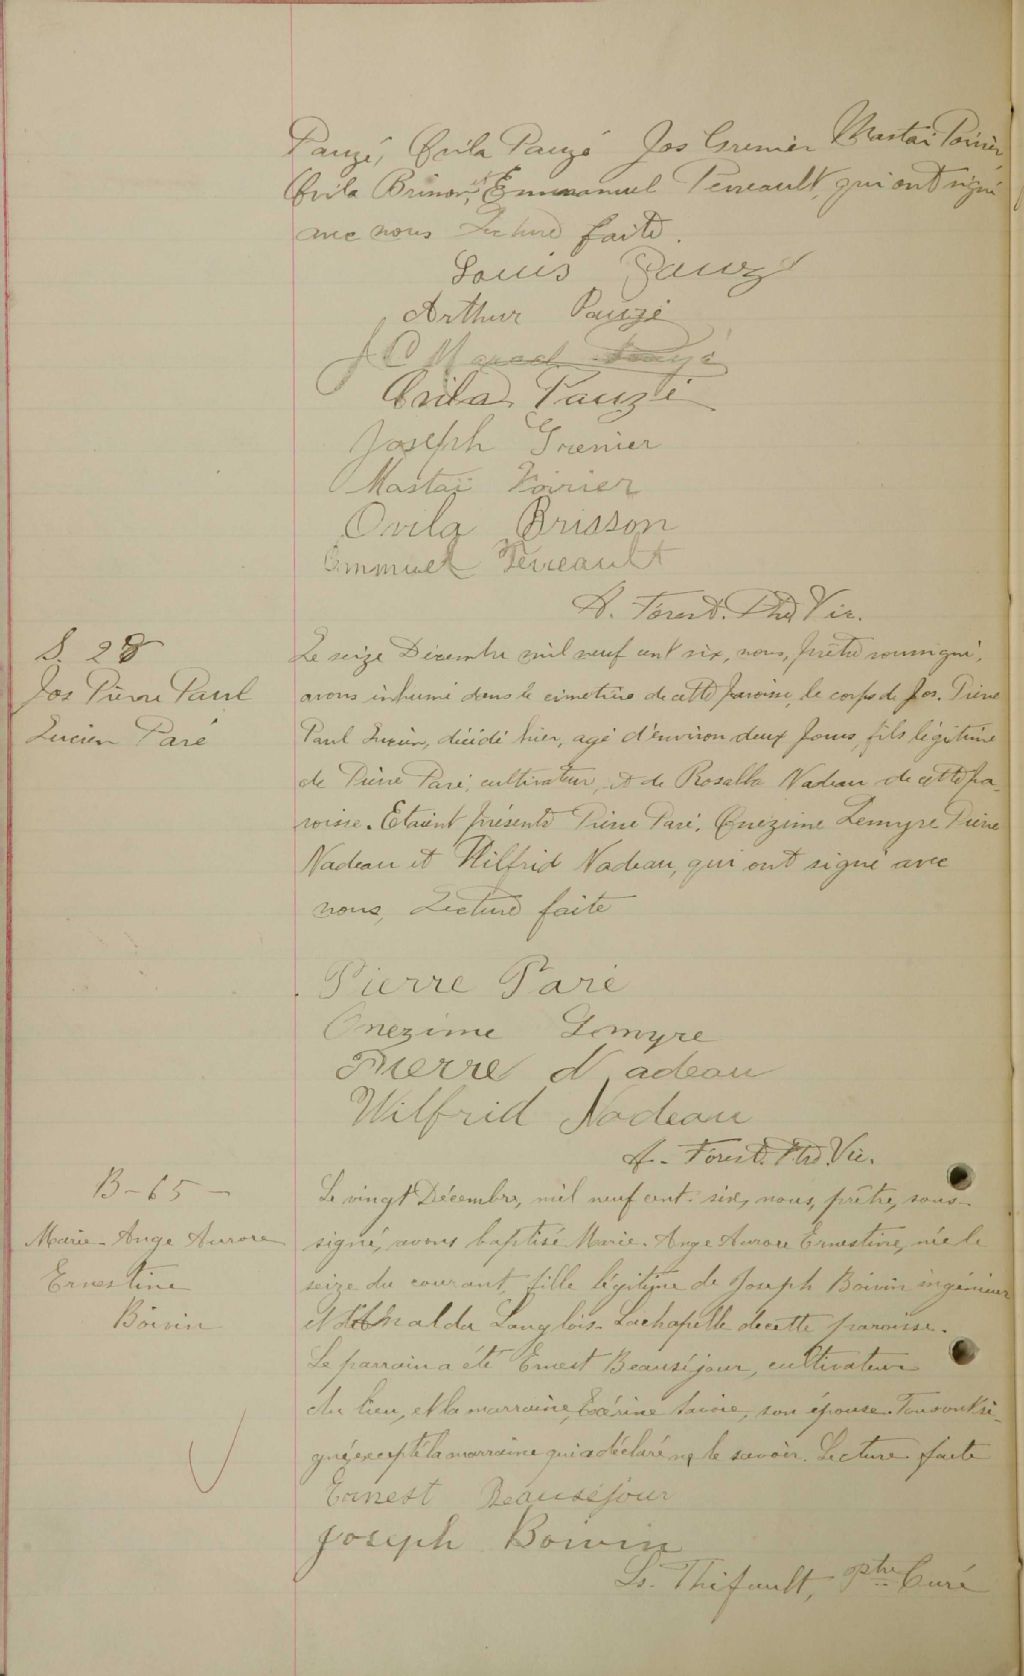 Pauzé, Ovila Pauzé Jos Grenier Mastaï Poirier,
Ovila Brisson, et Emmanuel Perreault, qui ont signé
avec nous Lecture faite.
Louis Pauzé
Arthur Pauzé
J C Marcel Pauzé
Ovila Pauzé
Joseph Grenier
Mastaï Poirier
Ovila Brisson
Emmuel Perreault
A. Forest. Ptre Vic.
S. 28
Jos Pierre Paul
Lucien Paré
Le seize Décembre mil neuf cent six, nous, prêtre soussigné,
avons inhumé dans le cimetière de cette paroisse, le corps de Jos. Pierre
Paul Lucien, décédé hier, agé d'environ deux jours, fils légitime
de Pierre Paré, cultivateur, et de Rosalba Nadeau de cette pa-
roisse. Etaient présents Pierre Paré, Onezime Lemyre Pierre
Nadeau et Wilfrid Nadeau, qui ont signé avec
nous, Lecture faite
Pierre Paré
Onezime Lemyre
Pierre Nadeau
Wilfrid Nadeau
A. Forest. Ptre. Vic.
B-65-
Marie-Ange Aurore
Ernestine
Boivin
Le vingt Décembre, mil neuf cent-six, nous, prêtre, sous-
signé, avons baptisé Marie-Ange Aurore Ernestine, née le
seize du courant, fille légitime de Joseph Boivin ingénieur
et d Langlois-Lachapelle de cette paroisse.
Le parrain a été Ernest Beauséjour, cultivateur
du lieu, et la marraine, Savoie, son épouse. Tous ont si-
gné, excepté la marraine qui a déclaré ne le savoir. Lecture faite
Ernest Beauséjour
Joseph Boivin
Ls. Thifault, ptre Curé